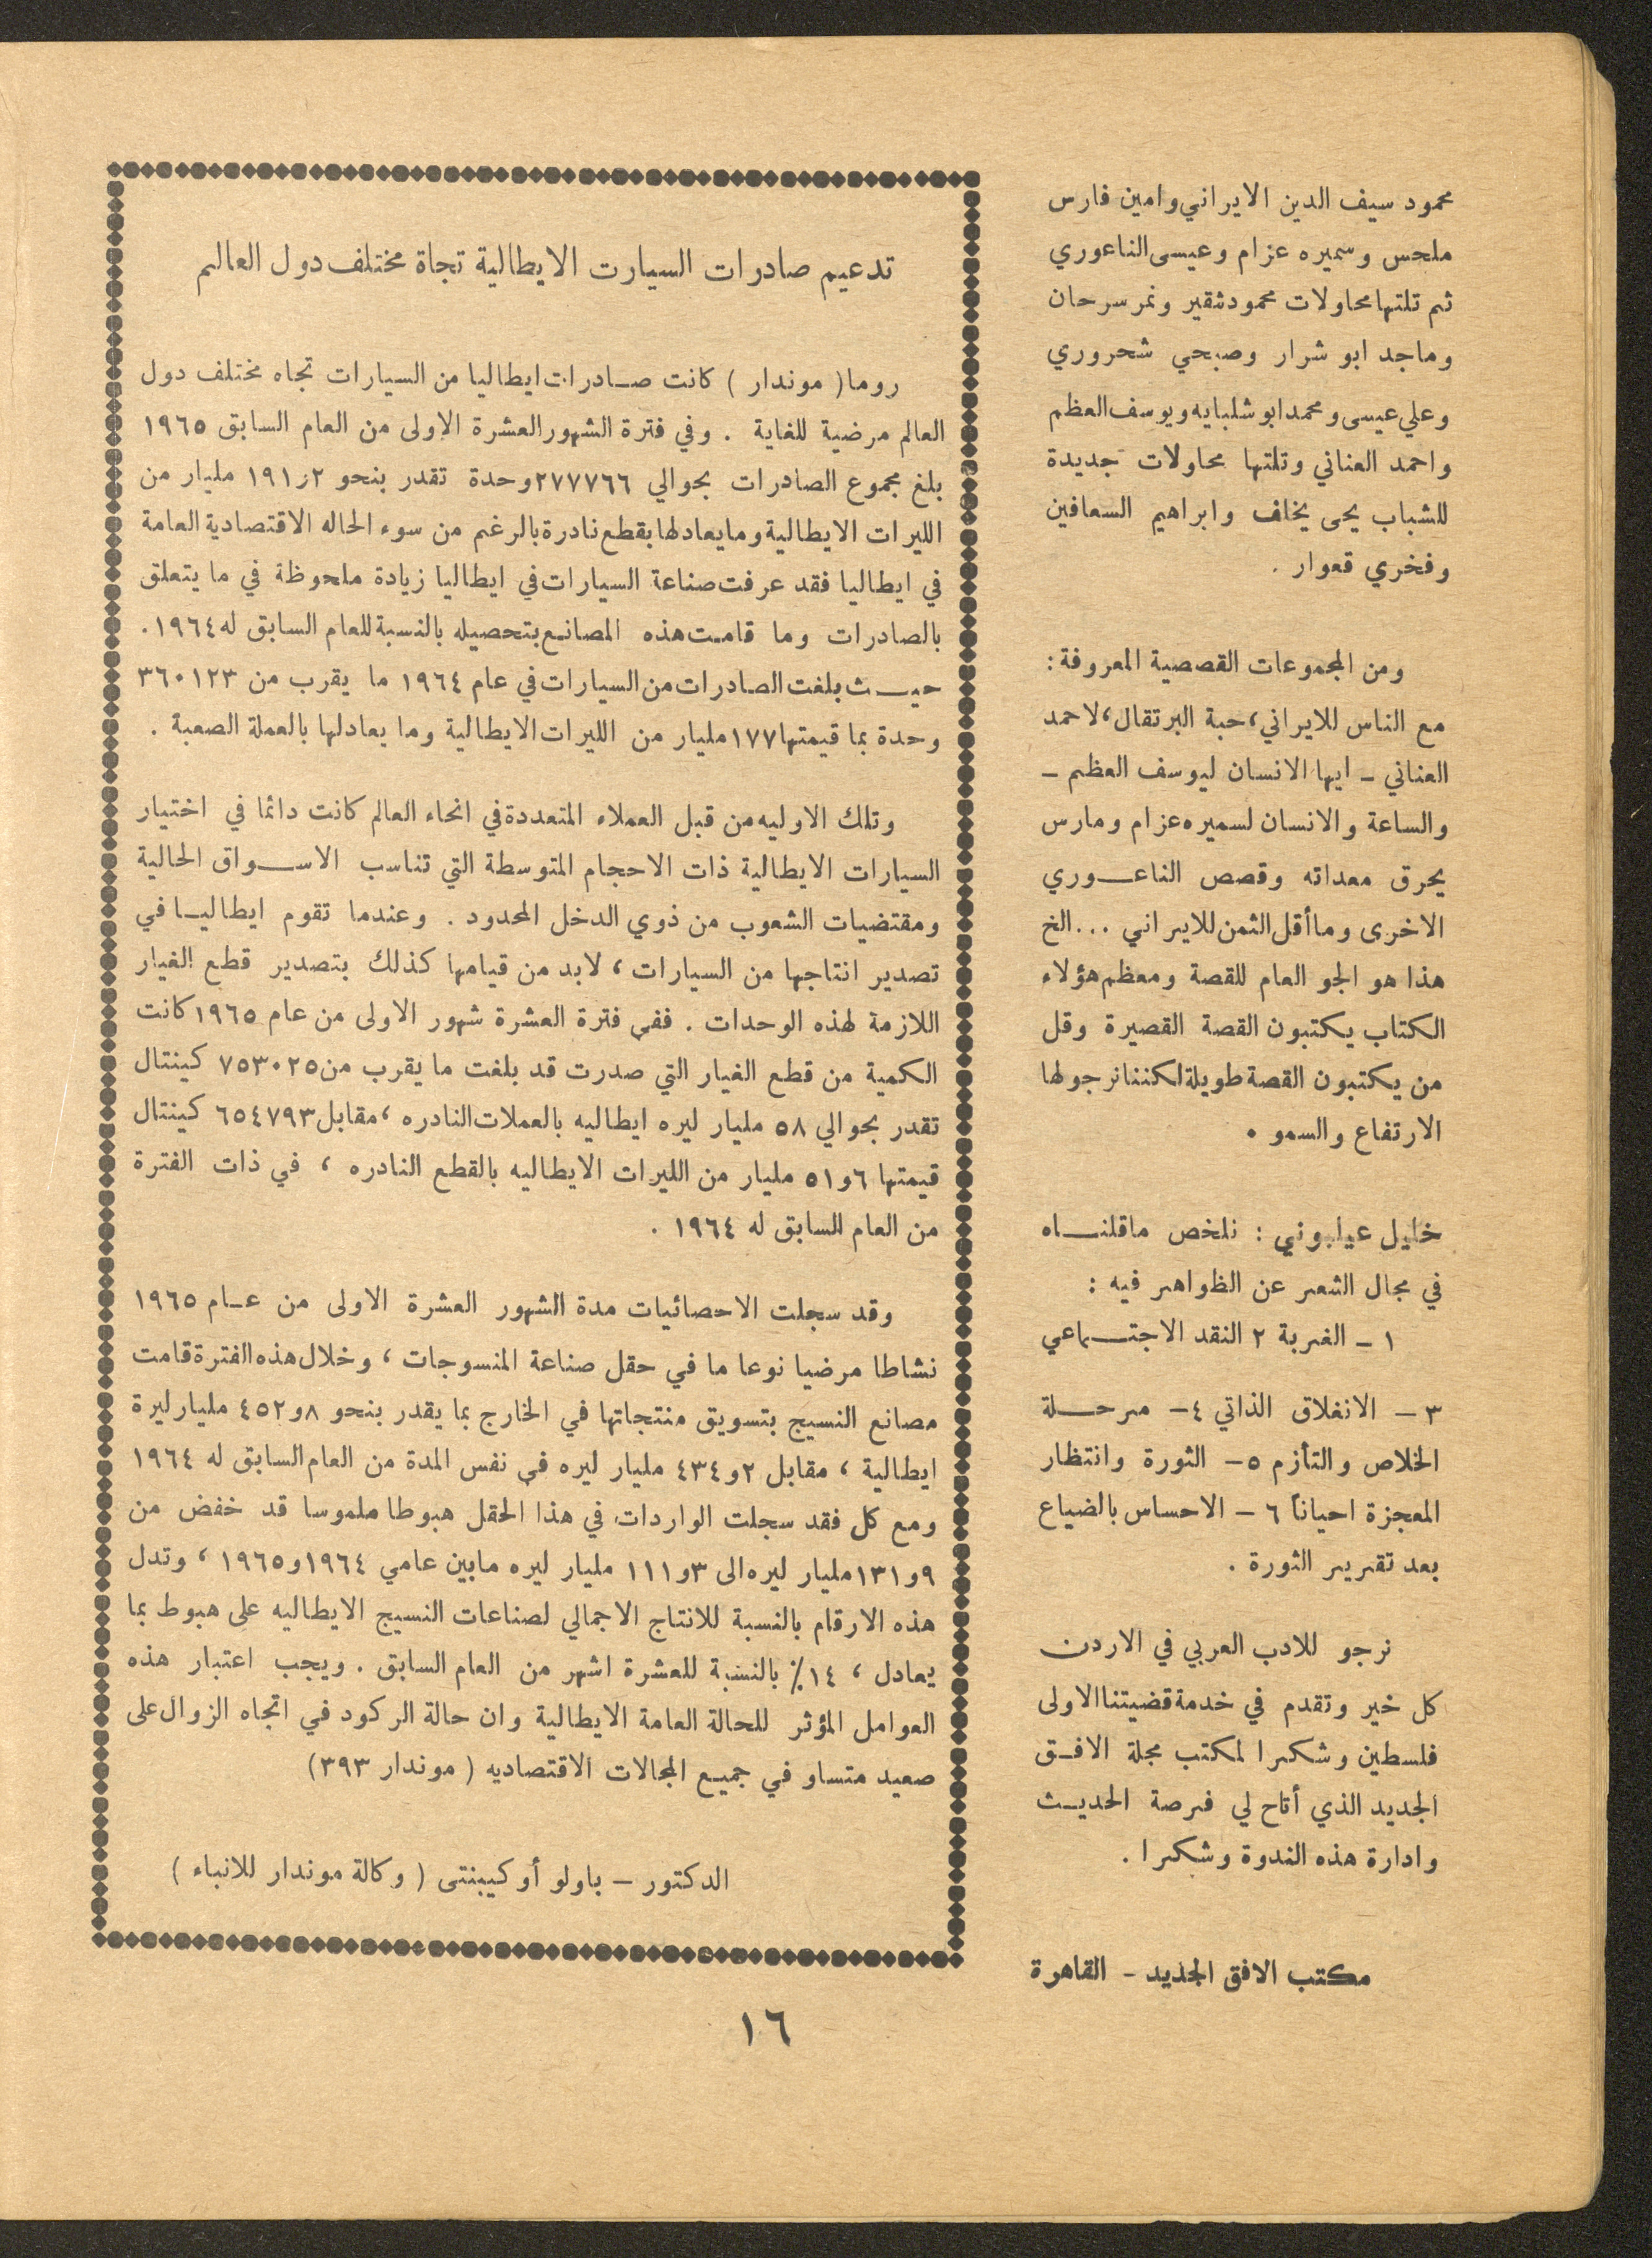 محمود سيف الدين الايراني وامين فارس
ملحس وسميره عزام وعيسى الناعوري
ثم تلتها محاولات محمود شقير ونمر سرحان
وماجد ابو شرار وصبحي شحروري
وعلي عيسى ومحمد ابو شلبايه ويوسف العظم
واحمد العناني وتلتها محاولات جديدة
للشباب يحى يخلف وابراهيم السعافين
وفخري قعوار .
ومن المجموعات القصصية المعروفة :
مع الناس للايراني ، حبة البرتقال ، لاحمد
العناني - ايها الانسان ليوسف العظم -
والساعة والانسان لسميره عزام ومارس
يحرق معداته وقصص الناعوري
الاخرى وما أقل الثمن للايراني ... الخ
هذا هو الجو العام للقصة ومعظم هؤلاء
الكتاب يكتبون القصة القصيرة وقل
من يكتبون القصة طويلة لكننا نرجو لها
الارتفاع والسمو .
خليل عيلبوني : نلخص ما قلناه
في مجال الشعر عن الظواهر فيه :
١ - الغربة ٢ النقد الاجتماعي
٣ - الانغلاق الذاتي ٤ - مرحلة
الخلاص والتأزم ٥ - الثورة وانتظار
المعجزة احياناً ٦ - الاحساس بالضياع
بعد تقرير الثورة .
نرجو للادب العربي في الاردن
كل خير وتقدم في خدمة قضيتنا الاولى
فلسطين وشكرا لمكتب مجلة الافق
الجديد الذي أتاح لي فرصة الحديث
وادارة هذه الندوة وشكرا .
مكتب الافق الجديد - القاهرة
تدعيم صادرات السيارت الايطالية تجاة مختلف دول العالم
روما ( موندار ) كانت صادرات ايطاليا من السيارات تجاه مختلف دول
العالم مرضية للغاية . وفي فترة الشهور العشرة الاولى من العام السابق ١٩٦٥
بلغ مجموع الصادرات بحوالي ٢٧٧٧٦٦ وحدة تقدر بنحو ٢ر١٩١ مليار من
الليرات الايطالية وما يعادلها بقطع نادرة بالرغم من سوء الحاله الاقتصادية العامة
في ايطاليا فقد عرفت صناعة السيارات في ايطاليا زيادة ملحوظة في ما يتعلق
بالصادرات وما قامت هذه المصانع بتحصيله بالنسبة للعام السابق له ١٩٦٤ .
حيث بلغت الصادرات من السيارات في عام ١٩٦٤ ما يقرب من ٣٦٠١٢٣
وحدة بما قيمتها ١٧٧ مليار من الليرات الايطالية وما يعادلها بالعملة الصعبة .
وتلك الاوليه من قبل العملاء المتعددة في انحاء العالم كانت دائما في اختيار
السيارات الايطالية ذات الاحجام المتوسطة التي تناسب الاسواق الحالية
ومقتضيات الشعوب من ذوي الدخل المحدود . وعندما تقوم ايطاليا في
تصدير انتاجها من السيارات ، لابد من قيامها كذلك بتصدير قطع الغيار
اللازمة لهذه الوحدات . ففي فترة العشرة شهور الاولى من عام ١٩٦٥ كانت
الكمية من قطع الغيار التي صدرت قد بلغت ما يقرب من ٧٥٣٠٢٥ كينتال
تقدر بحوالي ٥٨ مليار ليره ايطاليه بالعملات النادره ، مقابل ٦٥٤٧٩٣ كينتال
قيمتها ٦و٥١ مليار من الليرات الايطاليه بالقطع النادره ، في ذات الفترة
من العام السابق له ١٩٦٤ .
وقد سجلت الاحصائيات مدة الشهور العشرة الاولى من عام ١٩٦٥
نشاطا مرضيا نوعا ما في حقل صناعة المنسوجات ، وخلال هذه الفترة قامت
مصانع النسيج بتسويق منتجاتها في الخارج بما يقدر بنحو ٨و٤٥٢ مليار ليرة
ايطالية ، مقابل ٢و٤٣٤ مليار ليره في نفس المدة من العام السابق له ١٩٦٤
ومع كل فقد سجلت الواردات في هذا الحقل هبوطا ملموسا قد خفض من
٩و١٣١ مليار ليره الى ٣و١١١ مليار ليره مابين عامي ١٩٦٤ و١٩٦٥ ، وتدل
هذه الارقام بالنسبة للانتاج الاجمالي لصناعات النسيج الايطاليه على هبوط بما
يعادل ، ١٤٪ بالنسبة للعشرة اشهر من العام السابق . ويجب اعتبار هذه
العوامل المؤثر للحالة العامة الايطالية وان حالة الركود في اتجاه الزوال على
صعيد متساو في جميع المجالات الاقتصاديه ( موندار ٣٩٣ )
الدكتور - باولو أوكيبنتى ( وكالة موندار للانباء )
١٦